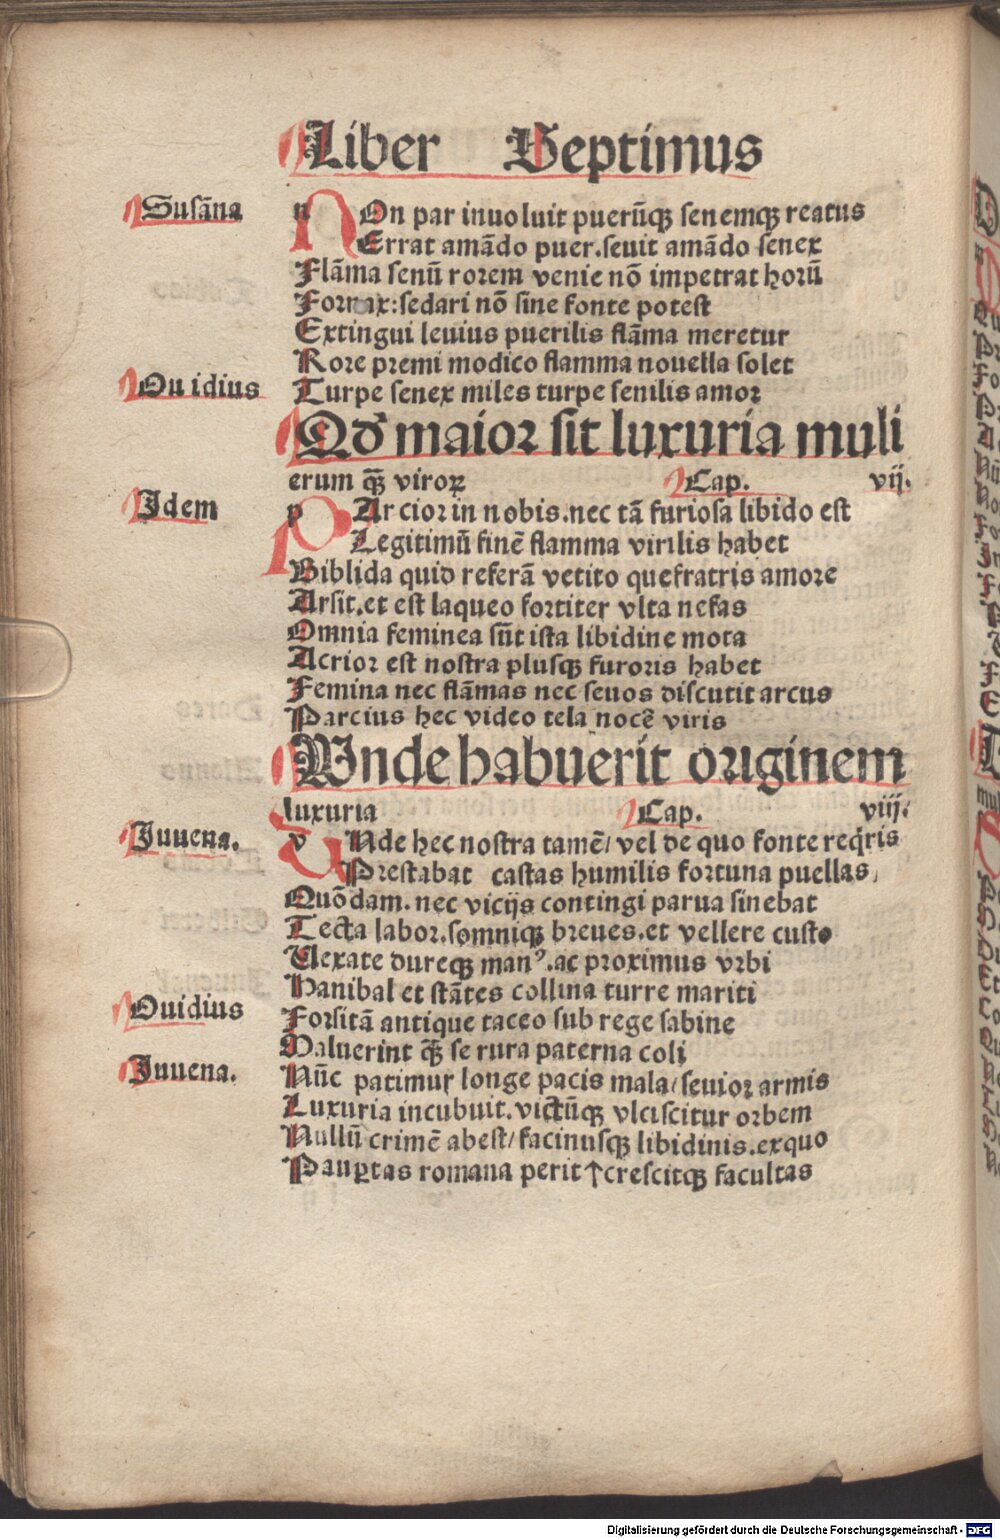 Liber Septimus
Susãna
NOn par inuoluit puerũqꝫ senemqꝫ reatus
Errat amãdo puer.seuit amãdo senex
Flãma senũ rorem venie nõ impetrat horũ
Fornax:sedari nõ sine fonte potest
Extingui leuius puerilis flãma meretur
Rore premi modico flamma nouella solet
Ouidius
Turpe senex miles turpe senilis amor
Qđ maior sit luxuria muli
erum q̃ꝫ viroꝝ Cap. vij.
Idem
PArcior in nobis.nec tã furiosa libido est
Legitimũ finẽ flamma virilis habet
Biblida quid referã vetito que fratris amore
Arsit.et est laqueo fortiter vlta nefas
Omnia feminea sũt ista libidine mota
Acrior est nostra plusqꝫ furoris habet
Femina nec flãmas nec seuos discutit arcus
Parcius hec video tela nocẽ viris
Vnde habuerit originem
luxuria Cap. viij.
Iuuena.
VNde hec nostra tamẽ/ vel de quo fonte reqͥris
Prestabat castas humilis fortuna puellas/
Quõdam.nec vicijs contingi parua sinebat
Tecta labor.somniqꝫ breues.et vellere custo
Vexate dureqꝫ manꝰ.ac proximus vrbi
Hanibal et stãtes collina turre mariti
Ouidius
Forsitã antique taceo sub rege sabine
Maluerint q̃ꝫ se rura paterna coli
Iuuena.
Nũc patimur longe pacis mala/seuior armis
Luxuria incubuit.victũqꝫ vlciscitur orbem
Nullũ crimẽ abest/facinusqꝫ libidinis.exquo
Pauꝑtas romana perit ↑crescitqꝫ facultas
Digitalisierung gefördert durch die Deutsche Forschungsgemeinschaft - DFG